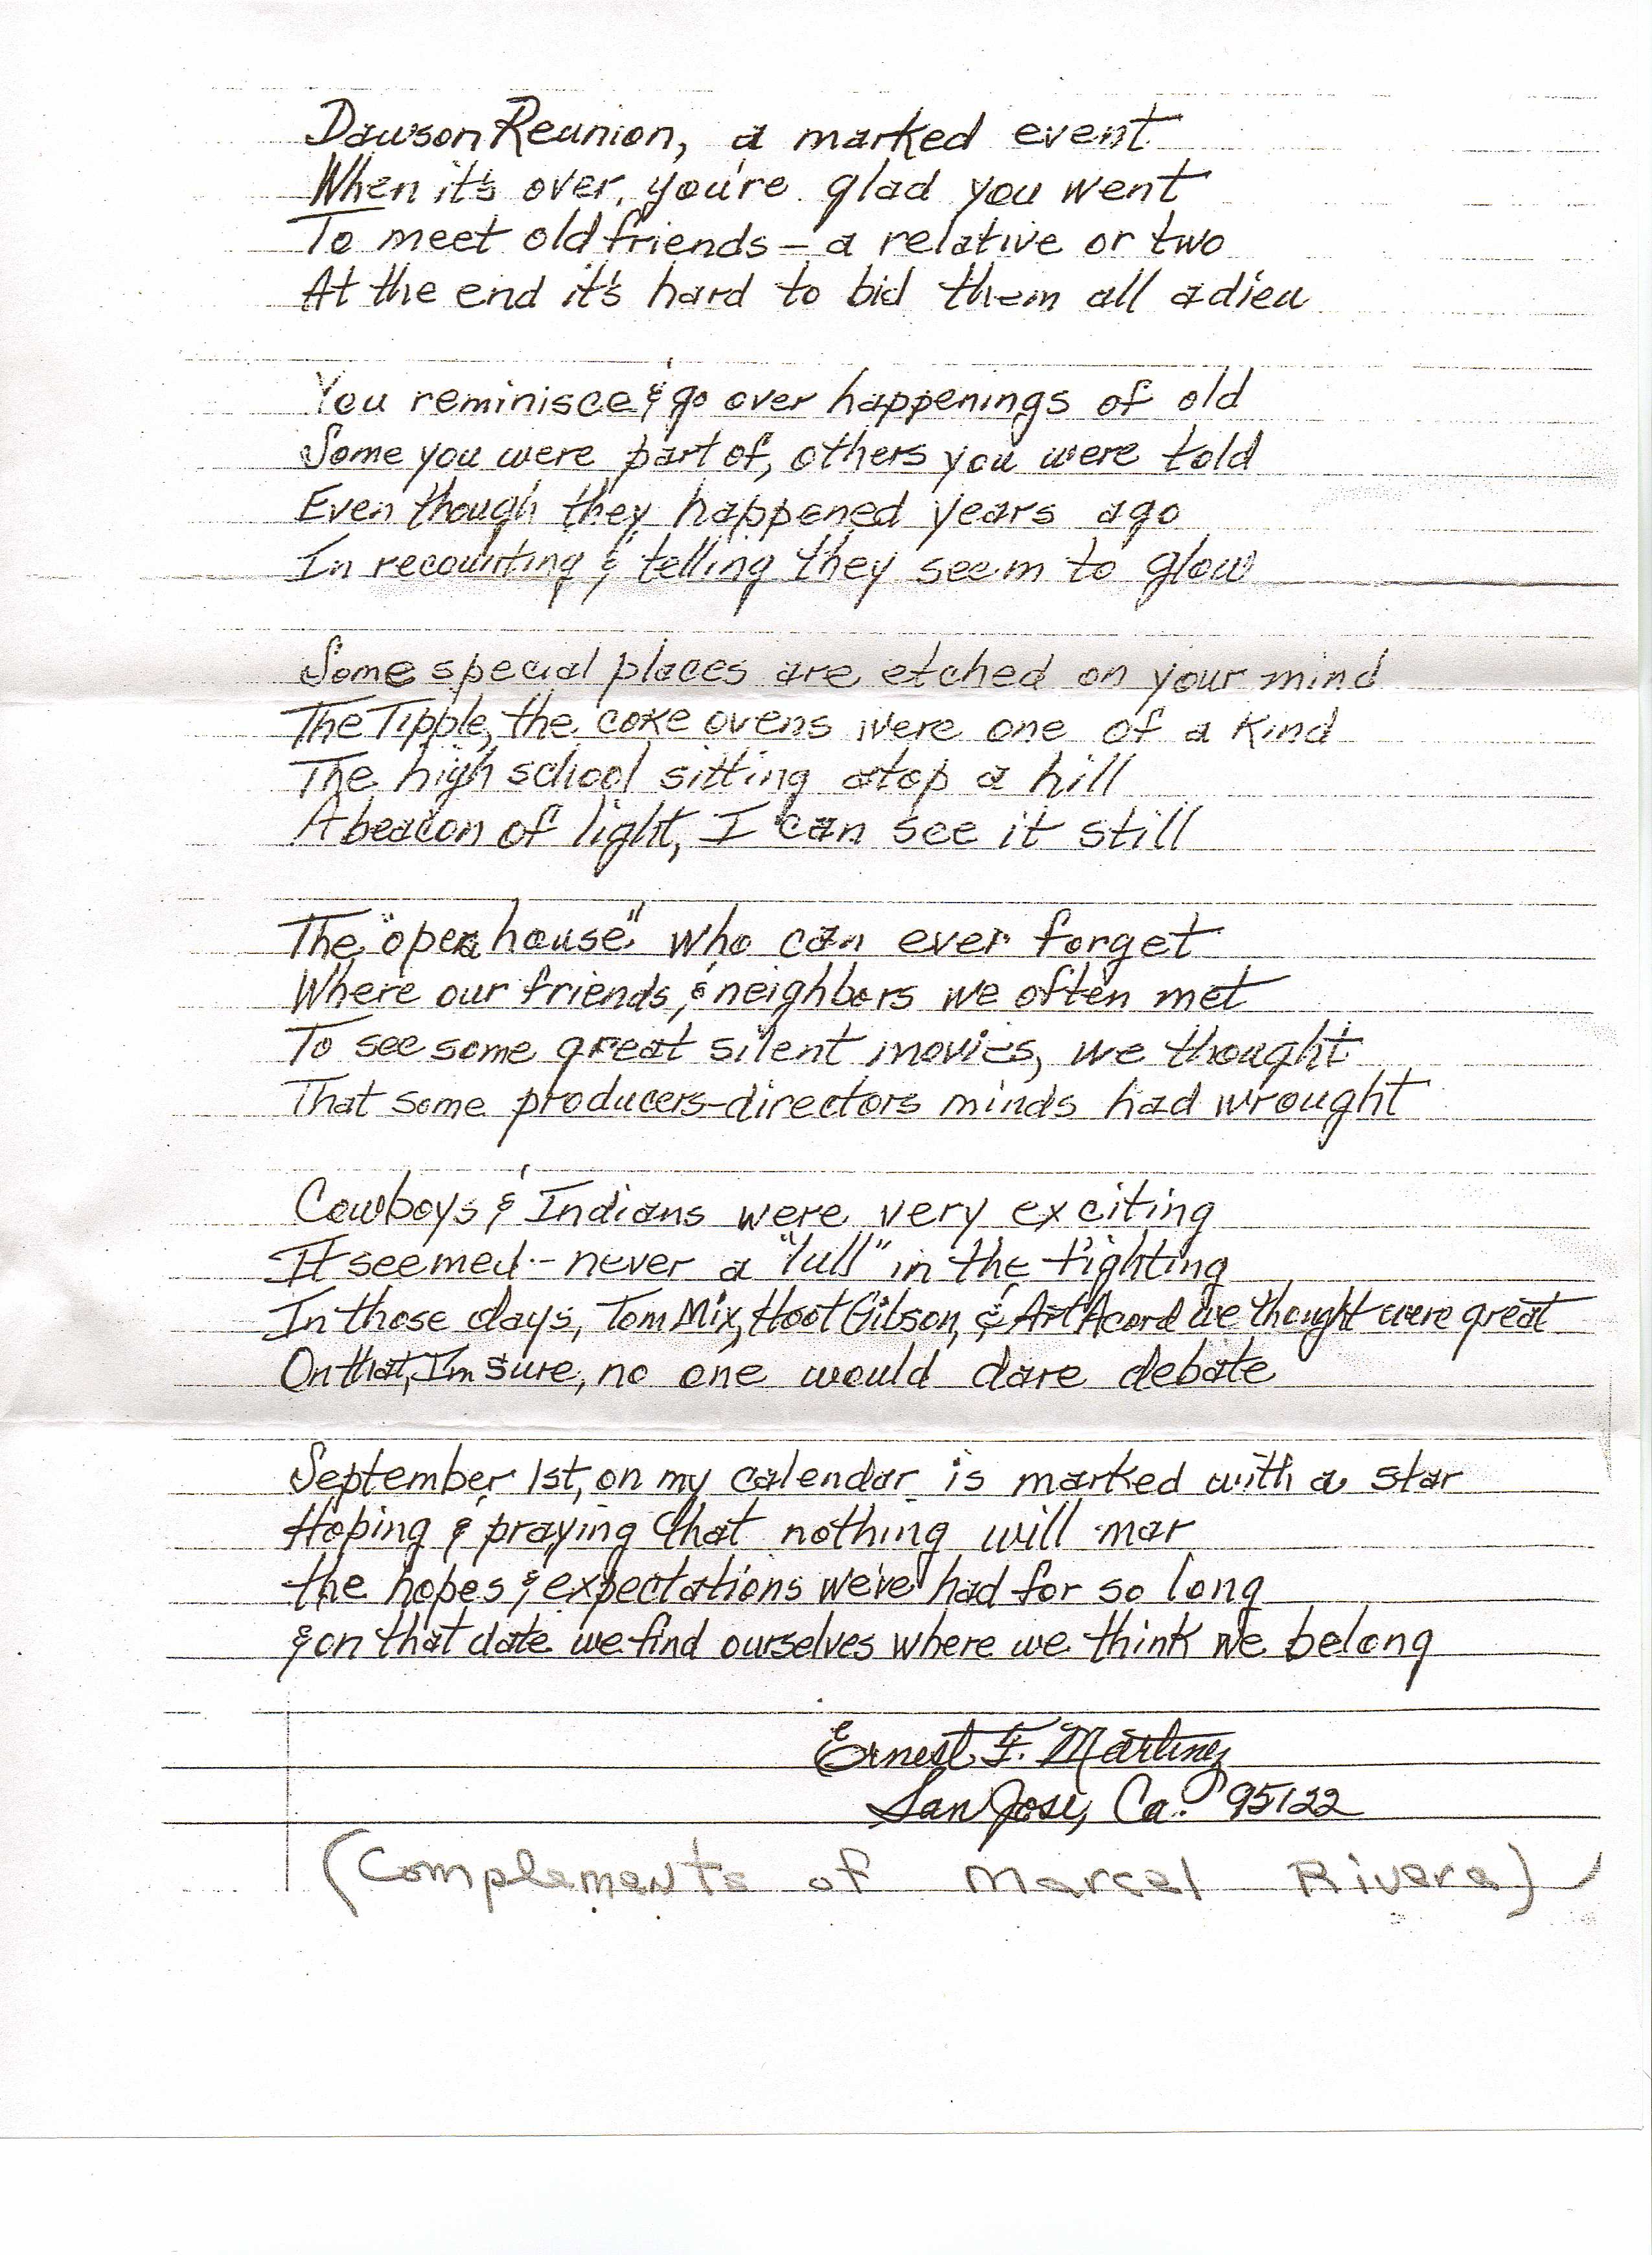 Dawson Reunion, a marked event
When it's over, you're glad you went
To meet old friends - a relative or two
At the end it's hard to bid them all adieu
You reminisce & go over happenings of old
Some you were part of, others you were told
Even though they happened years ago
In recounting & telling they seem to glow
Some special places are etched on your mind
The Tipple, the coke ovens were one of a kind
The high school sitting atop a hill
A beacon of light, I can see it still
The "opera house" who can ever forget
Where our friends, & neighbors we often met
To see some great silent movies, we thought
That some producers-directors minds had wrought
Cowboys & Indians were very exciting
It seemed - never a "lull" in the fighting
In those days, Tom Mix, Hoot Gibson, & Art Acord we thought were great
On that, I'm sure, no one would dare debate
September 1st, on my calendar is marked with a star
Hoping & praying that nothing will mar
the hopes & expectations we've had for so long
& on that date we find ourselves where we think we belong
Ernest F. Martinez
San Jose, Ca. 95122
(Complements of Marcel Rivera)